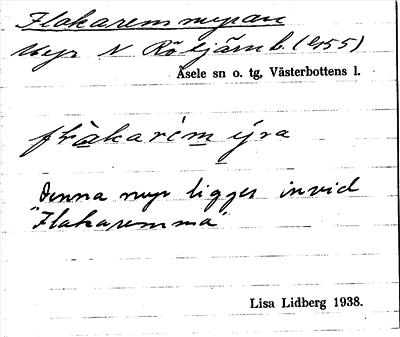 Flakaremmyran
Myr N Rötjärn b. (955)
Åsele sn o. tg, Västerbottens l.
Denna myr ligger invid
"Flakaremma"
Lisa Lidberg 1938.